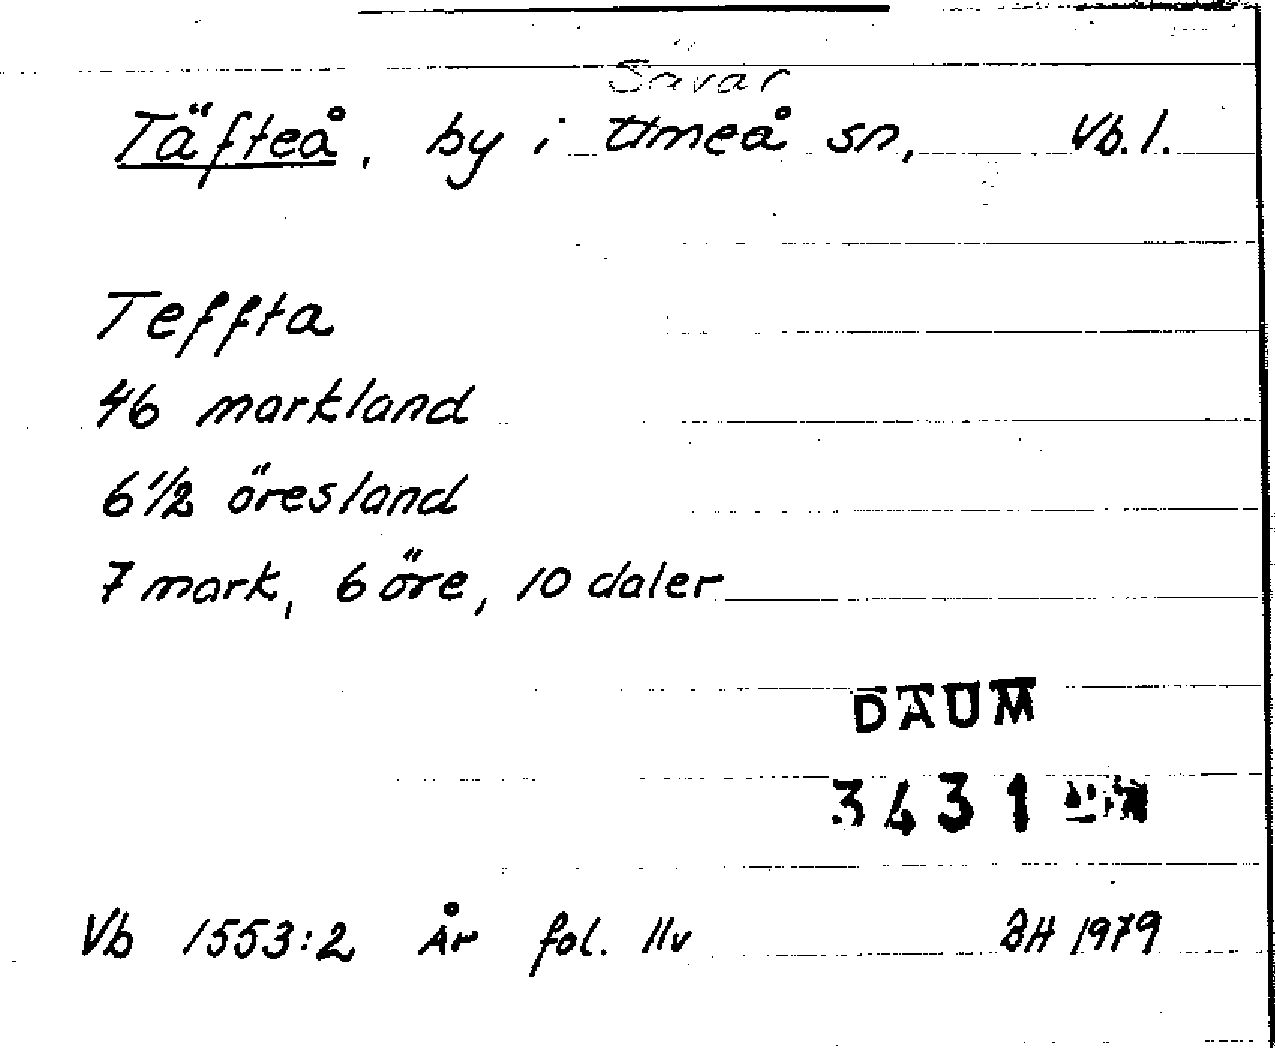 Sävar
Täfteå, by i Umeå sn, Vb. l.
Teffta
46 markland
6 1/2 öresland
7 mark, 6 öre, 10 daler
DAUM
3431
Vb 1553:2 År fol. 11v ÅH 1979